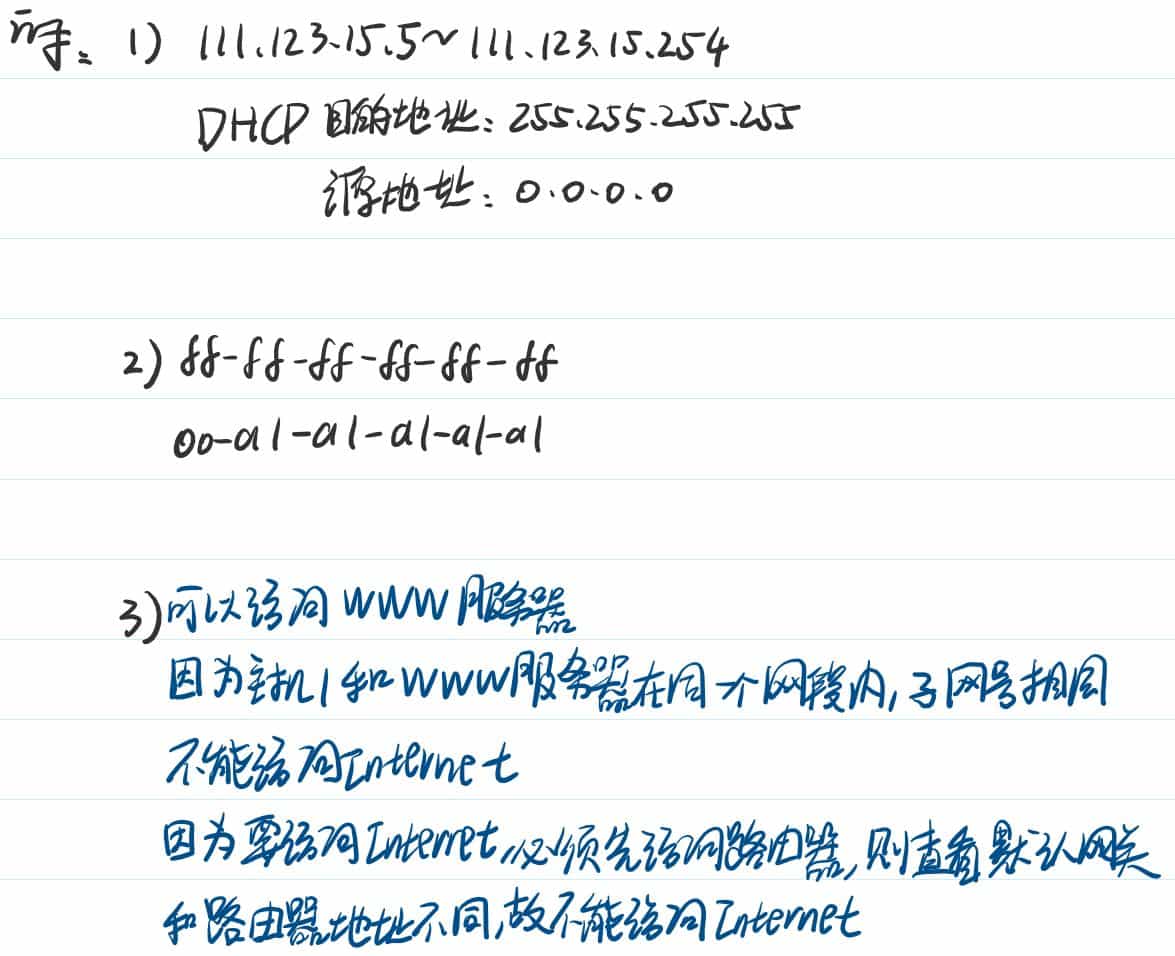 解：1) 111.123.15.5~111.123.15.254
DHCP 目的地址：255.255.255.255
源地址：0.0.0.0
2) ff-ff-ff-ff-ff-ff
00-a1-a1-a1-a1-a1
3) 可以访问 WWW 服务器
因为主机1和WWW服务器在同一个网段内，子网号相同
不能访问Internet
因为要访问Internet，必须先访问路由器，则查看默认网关
和路由器地址不同，故不能访问Internet